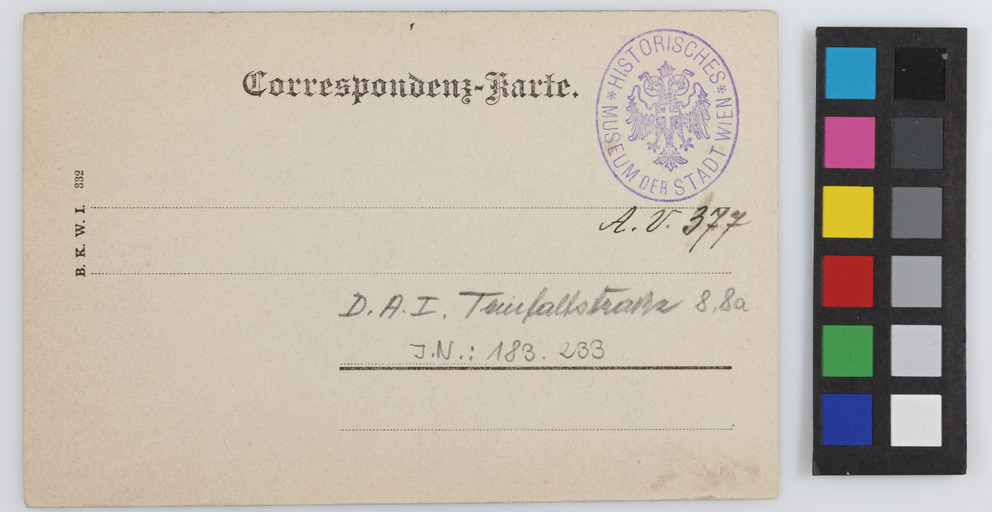 Correspondenz-Karte.
* HISTORISCHES * MUSEUM DER STADT WIEN
B. K. W. I. 332
A. V. 377
D. A. I. Teinfaltstraße 8, 8a
J.N.: 183. 233